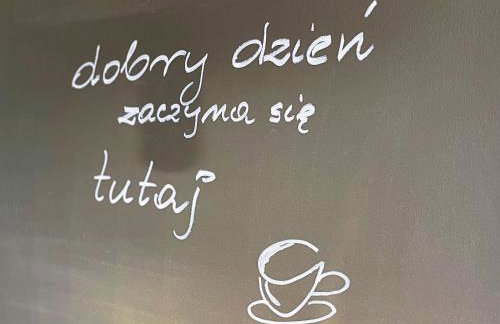 dobry dzień
zaczyna się
tutaj